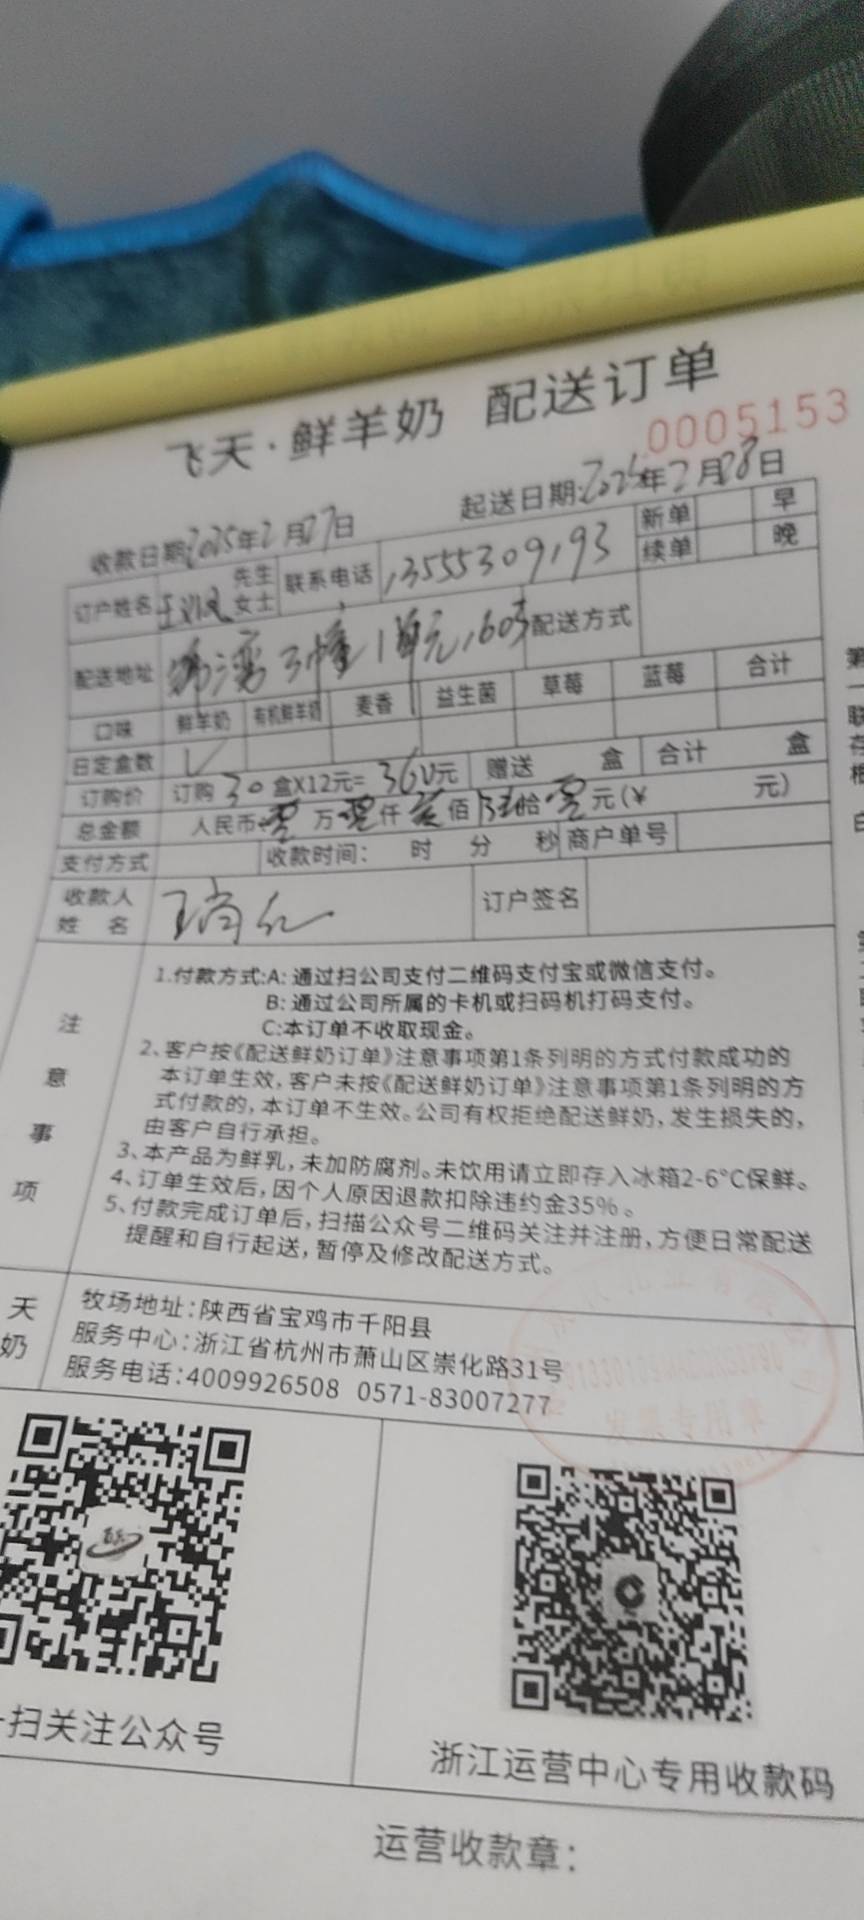 飞天·鲜羊奶 配送订单
0005153
收款日期:2025年2月27日 起送日期:2025年2月28日
订户姓名 先生 女士 联系电话 13555309193 新单 早 续单 晚
配送地址 3幢1单元1603 配送方式
口味 鲜羊奶 有机鲜羊奶 麦香 益生菌 草莓 蓝莓 合计
日定盒数 √
订购价 订购30盒X12元=360元 赠送 盒 合计 盒
总金额 人民币零万零仟叁佰陆拾零元(¥ 元)
支付方式 收款时间: 时 分 秒 商户单号
收款人 姓名 订户签名
注意事项
1.付款方式:A:通过扫公司支付二维码支付宝或微信支付。
B:通过公司所属的卡机或扫码机打码支付。
C:本订单不收取现金。
2、客户按《配送鲜奶订单》注意事项第1条列明的方式付款成功的
本订单生效,客户未按《配送鲜奶订单》注意事项第1条列明的方
式付款的,本订单不生效。公司有权拒绝配送鲜奶,发生损失的,
由客户自行承担。
3、本产品为鲜乳,未加防腐剂。未饮用请立即存入冰箱2-6°C保鲜。
4、订单生效后,因个人原因退款扣除违约金35%。
5、付款完成订单后,扫描公众号二维码关注并注册,方便日常配送
提醒和自行起送,暂停及修改配送方式。
天
奶
牧场地址:陕西省宝鸡市千阳县
服务中心:浙江省杭州市萧山区崇化路31号
服务电话:4009926508 0571-83007277
发票专用章
一扫关注公众号
浙江运营中心专用收款码
运营收款章:
第
一
联
存
根
白